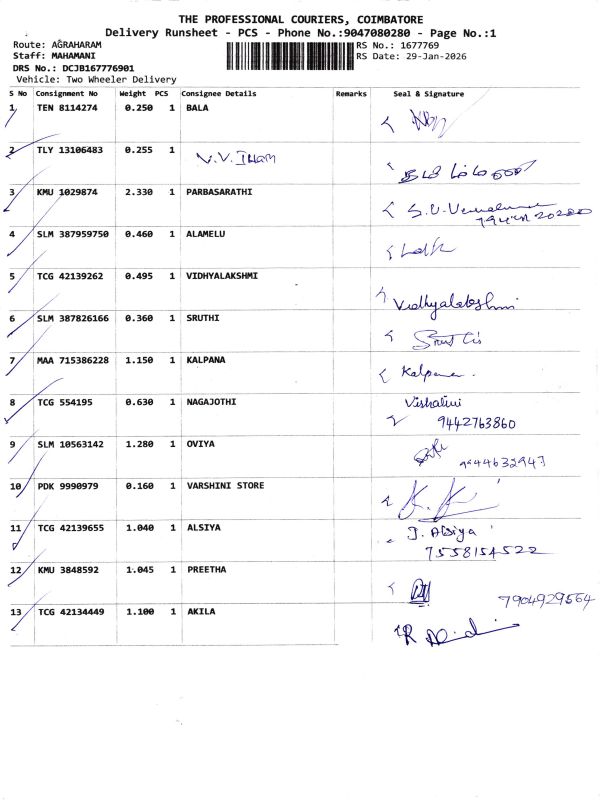 THE PROFESSIONAL COURIERS, COIMBATORE
Delivery Runsheet - PCS - Phone No.:9047080280 - Page No.:1
Route: AGRAHARAM
RS No.: 1677769
Staff: MAHAMANI
RS Date: 29-Jan-2026
DRS No.: DCJB167776901
Vehicle: Two Wheeler Delivery
S No Consignment No Weight PCS Consignee Details Remarks Seal & Signature
1 TEN 8114274 0.250 1 BALA
2 TLY 13106483 0.255 1
3 KMU 1029874 2.330 1 PARBASARATHI
4 SLM 387959750 0.460 1 ALAMELU
5 TCG 42139262 0.495 1 VIDHYALAKSHMI Vidhyalakshmi
6 SLM 387826166 0.360 1 SRUTHI
7 MAA 715386228 1.150 1 KALPANA Kalpana
8 TCG 554195 0.630 1 NAGAJOTHI Vishalini
9442763860
9 SLM 10563142 1.280 1 OVIYA
10 PDK 9990979 0.160 1 VARSHINI STORE
11 TCG 42139655 1.040 1 ALSIYA J. Alsiya
7558154522
12 KMU 3848592 1.045 1 PREETHA
7904929564
13 TCG 42134449 1.100 1 AKILA